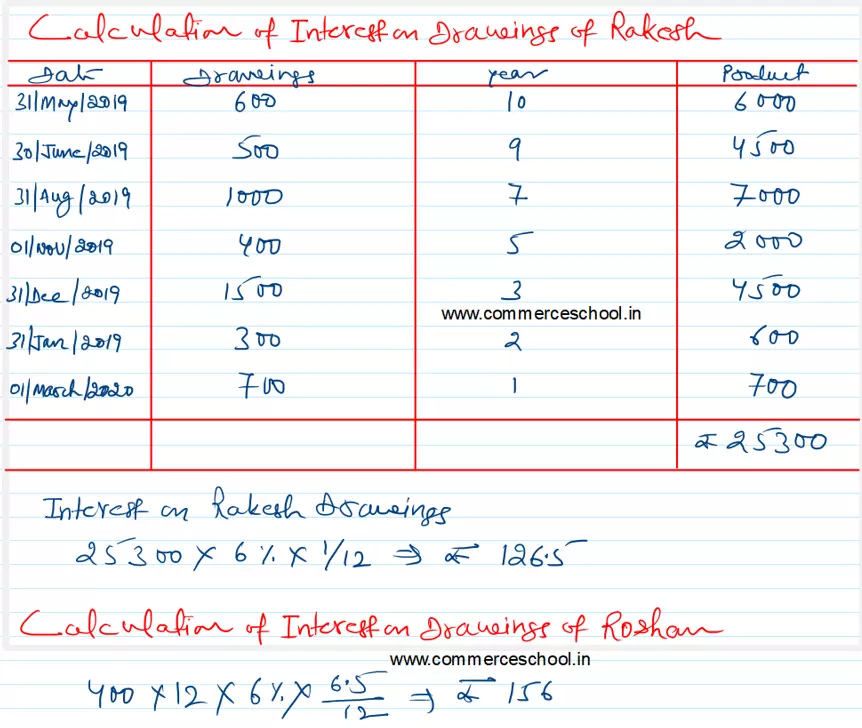 Calculation of Interest on Drawings of Rakesh
Date Drawings year Product
31/May/2019 600 10 6000
30/June/2019 500 9 4500
31/Aug/2019 1000 7 7000
01/Nov/2019 400 5 2000
31/Dec/2019 1500 3 4500
www.commerceschool.in
31/Jan/2019 300 2 600
01/March/2020 700 1 700
₹ 25300
Interest on Rakesh Drawings
25300 × 6% × 1/12 ⇒ ₹ 126.5
Calculation of Interest on Drawings of Roshan
www.commerceschool.in
400 × 12 × 6% × 6.5/12 ⇒ ₹ 156